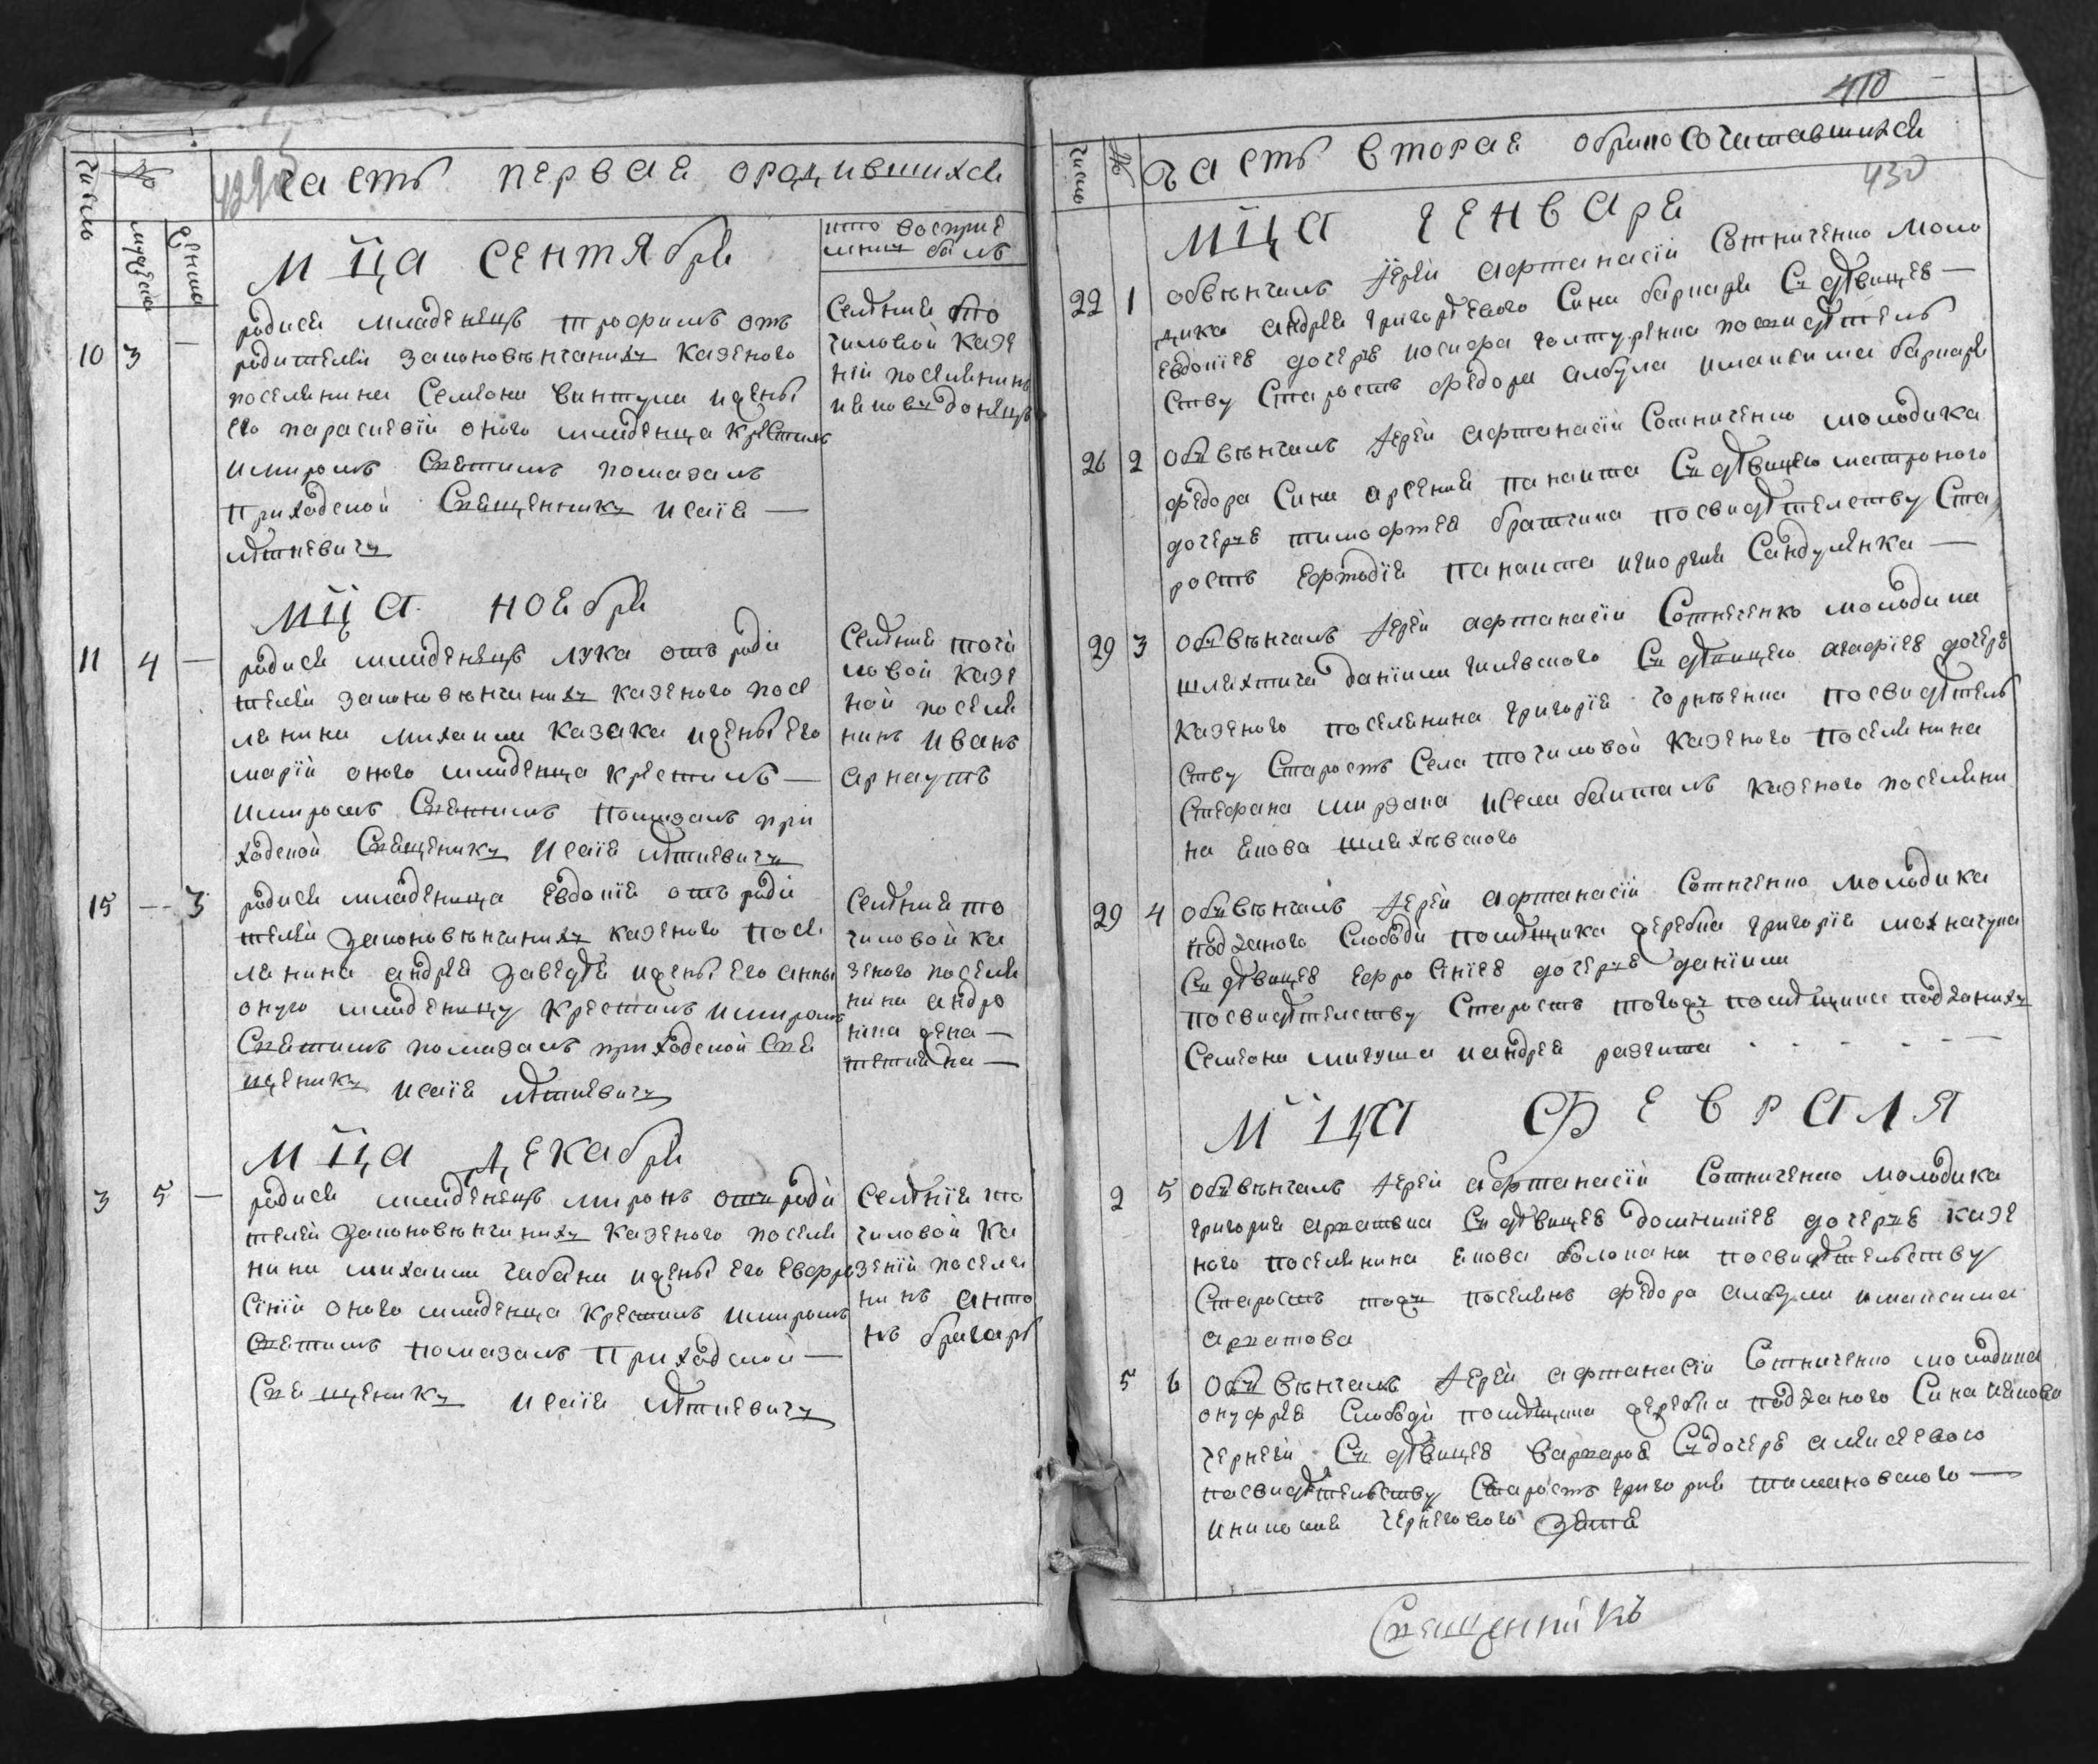 часть первая ородившихся
число
№
мужеска
женска
мца сентября
кто восприе
мникъ былъ
10 3 —
родися младенецъ трофимъ отъ
родителей законовѣнчаныхъ казеного
поселянина Семіона винтули ижены
его параскевіи оного младенца крестилъ
имиромъ Святимъ помазалъ
приходской Священникъ исаія —
лѣткевичъ
Селѣния то
чиловой казе
ній поселянинъ
яковъ донецъ
мца ноебря
11 4 —
родися младенецъ лука отъ роди
телей законовѣнчанихъ казеного посе
лянина михаила казака ижены его
маріи оного младенца крестилъ —
имиромъ Святимъ помазалъ при
ходской Священикъ исаія лѣткевичъ
Селѣния точи
ловой казе
ной поселя
нинъ иванъ
арнаутъ
15 — 3
родися младеница евдокія отъ роди
телей законовѣнчанихъ казеного посе
лянина андрея ижены его анны
оную младеницу крестилъ имиромъ
Святимъ помазалъ приходской Свя
щеникъ исаія лѣткевичъ
Селѣния то
чиловой ка
зеного поселя
нина андро
ника жена —
мца декабря
3 5 —
родися младенецъ миронъ отъ роди
телей законовѣнчанихъ казеного поселя
нина михаила чабана ижены его евфро
Сініи оного младенца крестилъ имиромъ
Святимъ помазалъ приходской —
Священикъ исаія лѣткевичъ
Селѣнія то
чиловой ка
зеній поселя
нинъ анто
нъ бригаръ
410
430
число
№
часть вторая обрако Сочитавшихся
мца генваря
22 1
обвѣнчалъ іерей афтанасій Сотниченко моло
дика андрея григориевого Сина барнари Съ дѣвицев —
евдокіев дочерв иосифа посвидѣтель
Ству Старость федора албула имаксима барнари
26 2
обвѣнчалъ іерей афтанасій Сотниченко молодика
федора Сина арсения панаита Съ дѣвицею матроного
дочерев тимофтея братчина посвидѣтелству Ста
рость ефтодія панаита игиоргия Сандуленка —
29 3
обвѣнчалъ іерей афтанасій Сотнеченко молодика
шляхтича данііла Съ дѣвицею агафіев дочерв
казеного поселянина григорія посвидѣтель
Ству Старость Села точиловой казеного поселянина
Стефана мирзака исела казеного поселяни
на якова шляхѣвского
29 4
обвѣнчалъ іерей афтанасій Сотниченко молодика
подданого Слободи помѣщика жеребка григорія
Съ дѣвицев ефросініев дочерев данііла
посвидѣтелству Старость тогожъ помѣщика подданихъ
Семиона мигуша иандрея
мца февраля
2 5
обвѣнчалъ іерей афтанасій Сотниченко молодика
григория Съ дѣвицев домникіев дочерев казе
ного поселянина якова посвидѣтельству
Старость тожъ поселянъ федора албули имаксима
архатова
5 6
обвѣнчалъ іерей афтанасій Сотниченко молодика
онуфрея Слободи помѣщика жеребка подданого Сина якова
чернеги Съ дѣвицев варваров Съ дочерв алексеевого
посвидѣтельству Старость григория —
иниколая зятя
Священникъ